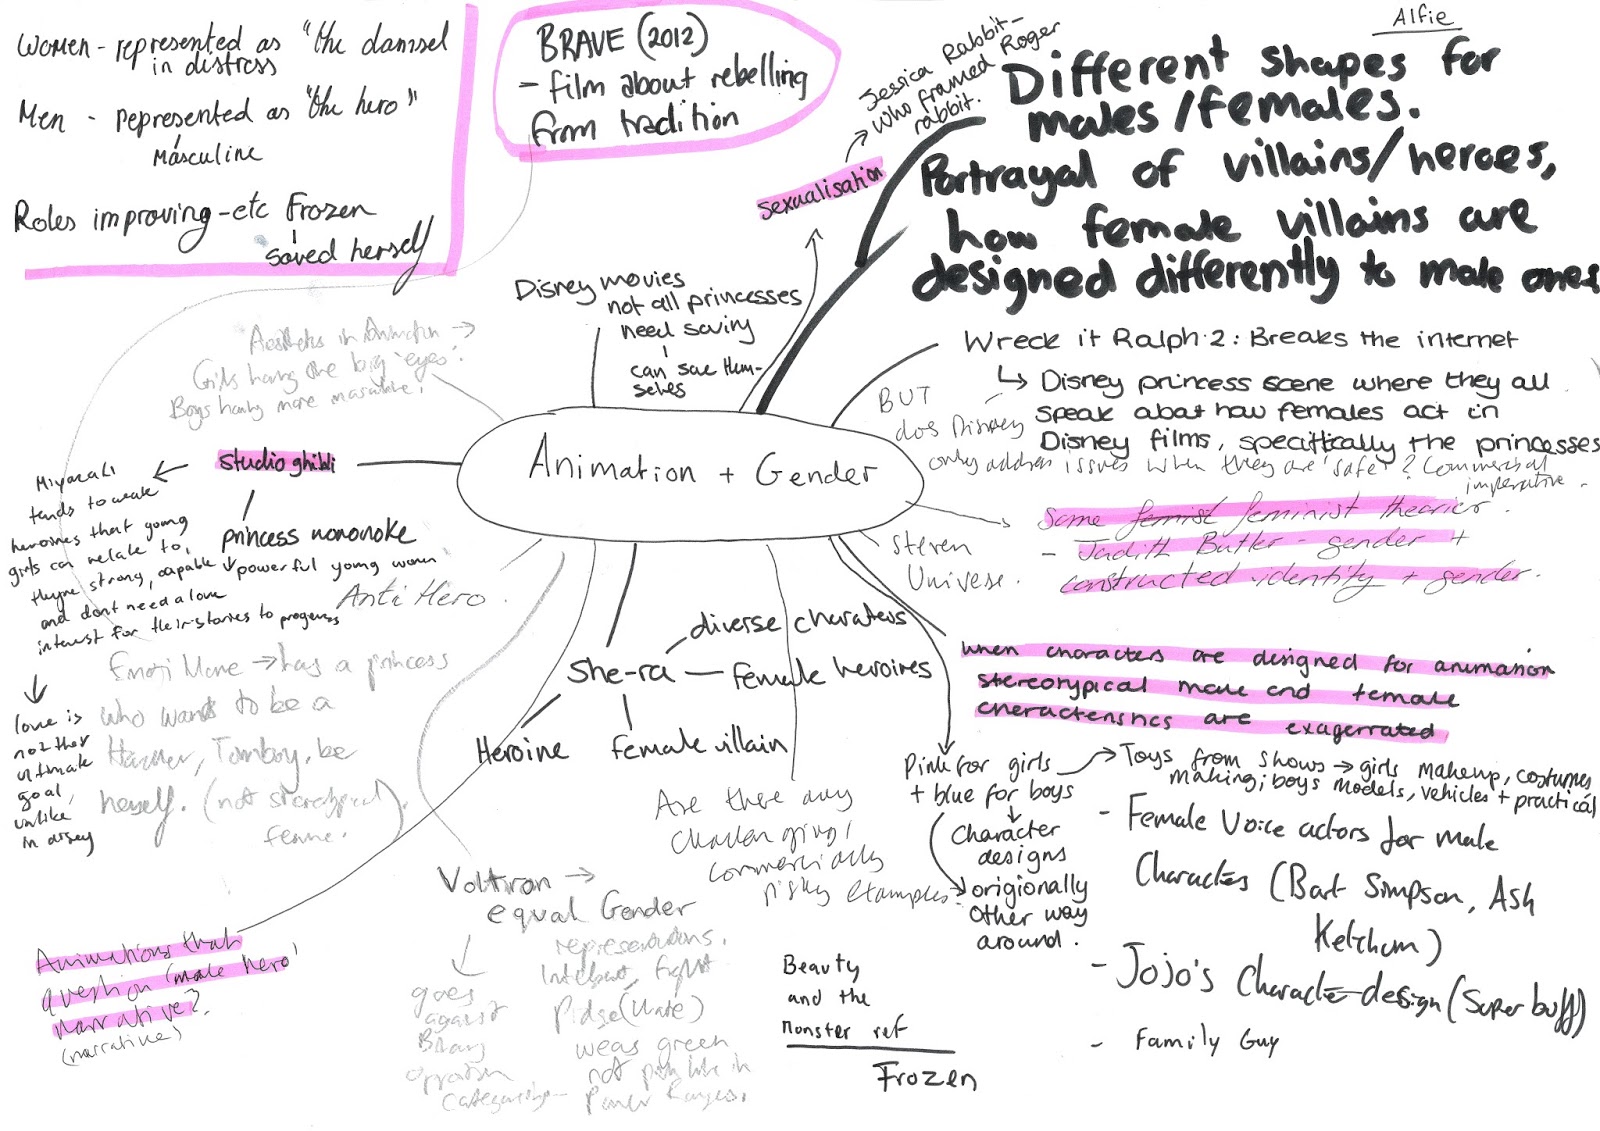 Women - represented as "the damsel
in distress
Men - represented as "the hero"
Masculine
Roles improving - etc Frozen
saved herself
BRAVE (2012)
- film about rebelling
from tradition
Jessica Rabbit -
Who framed Roger
rabbit.
sexualisation
Alfie
Different shapes for
males/females.
Portrayal of villains/heroes,
how female villains are
designed differently to male ones
Disney movies
not all princesses
need saving
can save them-
selves
Aesthetics in Animation
Girls having the big 'eyes'.
Boys having more masculine
Wreck it Ralph 2: Breaks the internet
Disney princess scene where they all
speak about how females act in
Disney films, specifically the princesses
BUT
does Disney
only address issues when they are 'safe'? Commercial
imperative.
Animation + Gender
studio ghibli
Miyazaki
tends to make
heroines that young
girls can relate to,
theyre strong, capable
and dont need a love
interest for their stories to progress
love is
not ther
ultimate
goal,
unlike
in disney
princess mononoke
powerful young women
Anti Hero.
Some femist feminist theories.
- Judith Butler - gender +
constructed identity + gender.
Steven
Universe.
Emoji Movie → has a princess
who wants to be a
Hacker, Tomboy, be
herself. (not stereotypical)
femme.
She-ra
diverse charaters
female heroires
Heroine
female villain
when characters are designed for animation
stereotypical male and female
characteristics are exagerrated
Pink for girls
+ blue for boys
Character
designs
origionally
other way
around.
Toys from shows → girls makeup, costumes
making; boys models, vehicles + practical
- Female Voice actors for male
Characters (Bart Simpson, Ash
Ketchum)
- Jojo's Character design (Super buff)
- Family Guy
Are there any
challenging/
commercially
risky examples
Voltron →
equal Gender
representations.
goes
against
Binary
Pidge (
wears green
not pink like in
Power Rangers.
Animations that
question 'male hero'
narrative?
(narrative)
Beauty
and the
Monster ref
Frozen